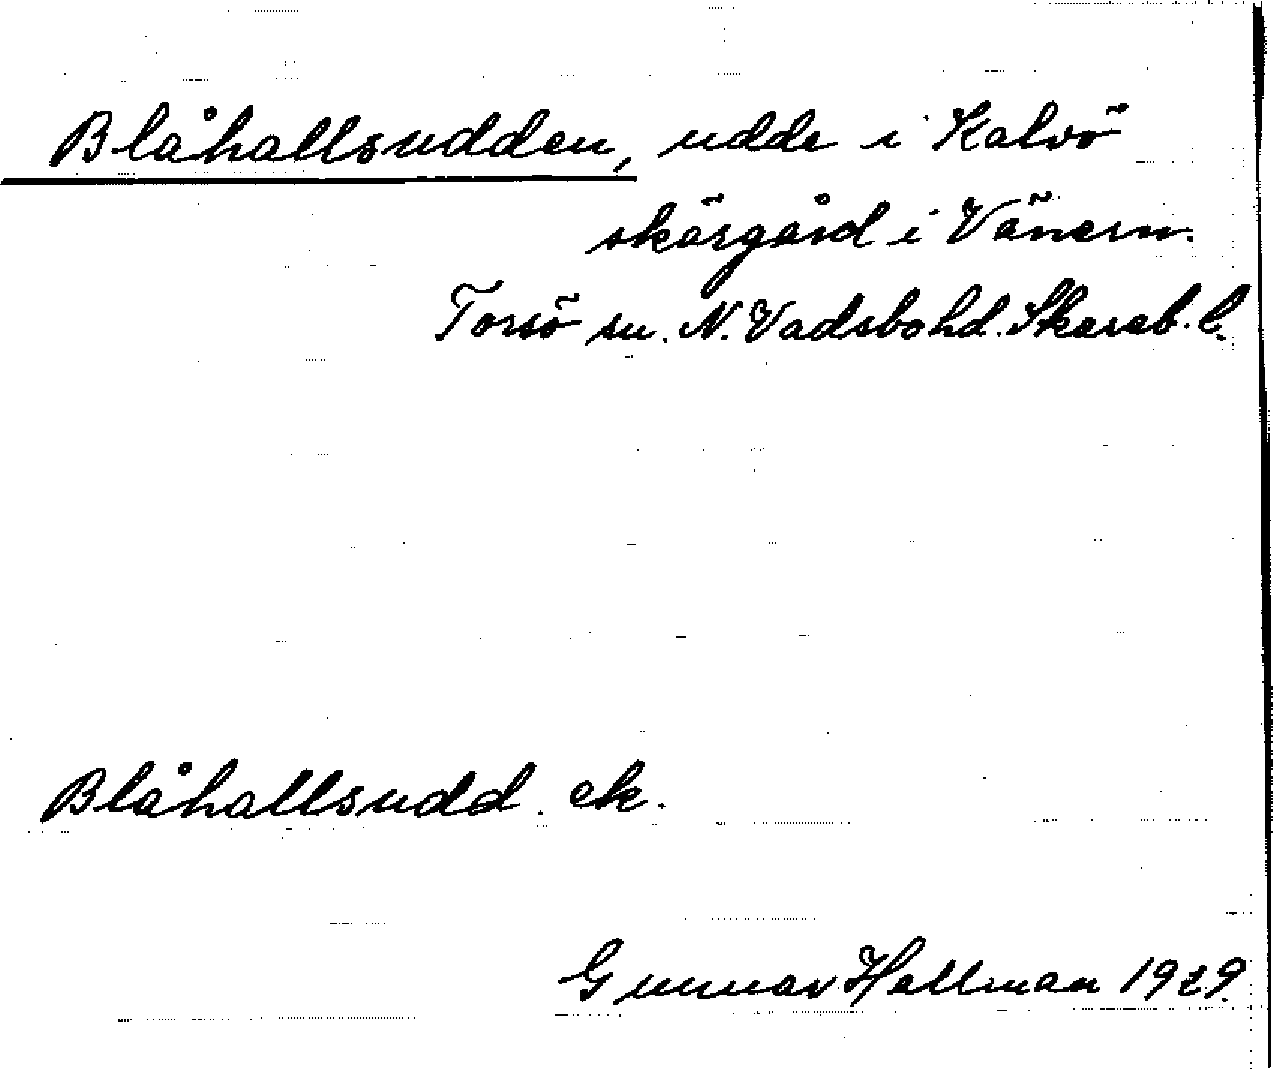 Blåhallsudden, udde i Kalvö
skärgård i Vänern.
Torsö sn. N. Vadsbohd. Skarab. l.
Blåhallsudd. ek.
Gunnar Hallman 1929.